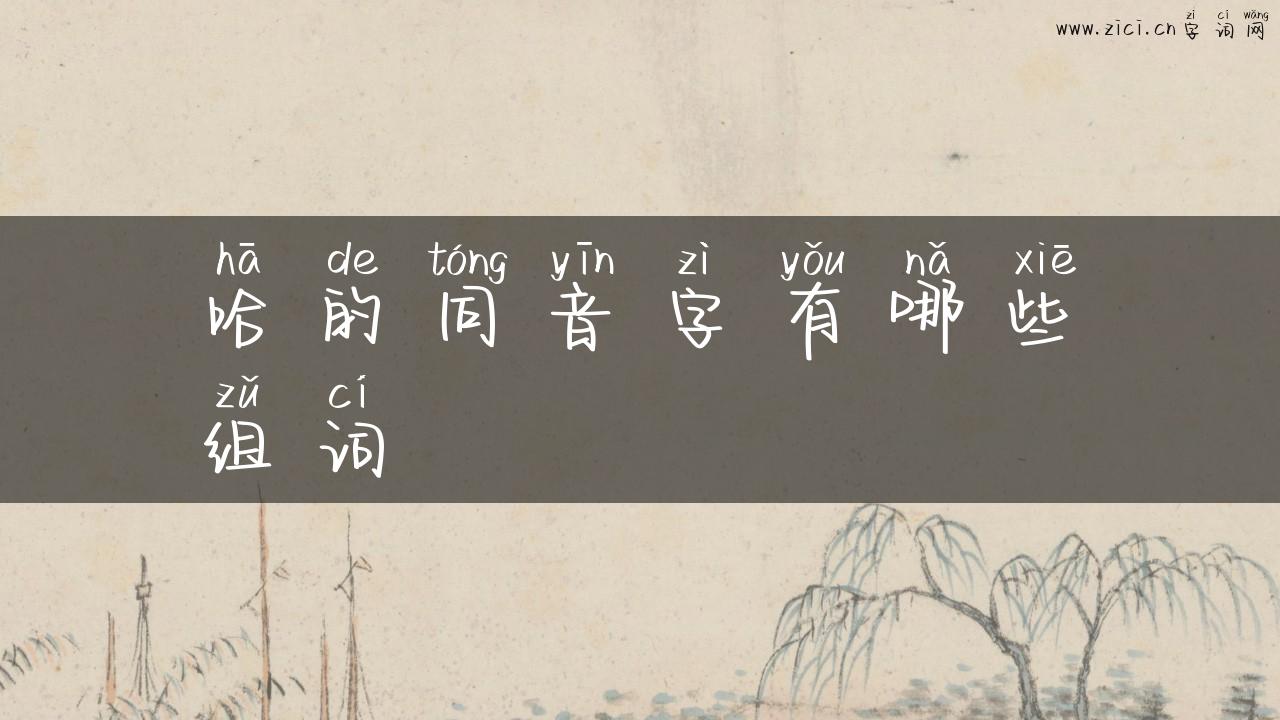 zì cí wǎng
www.zici.cn 字词网
hā de tóng yīn zì yǒu nǎ xiē
哈的同音字有哪些
zǔ cí
组词